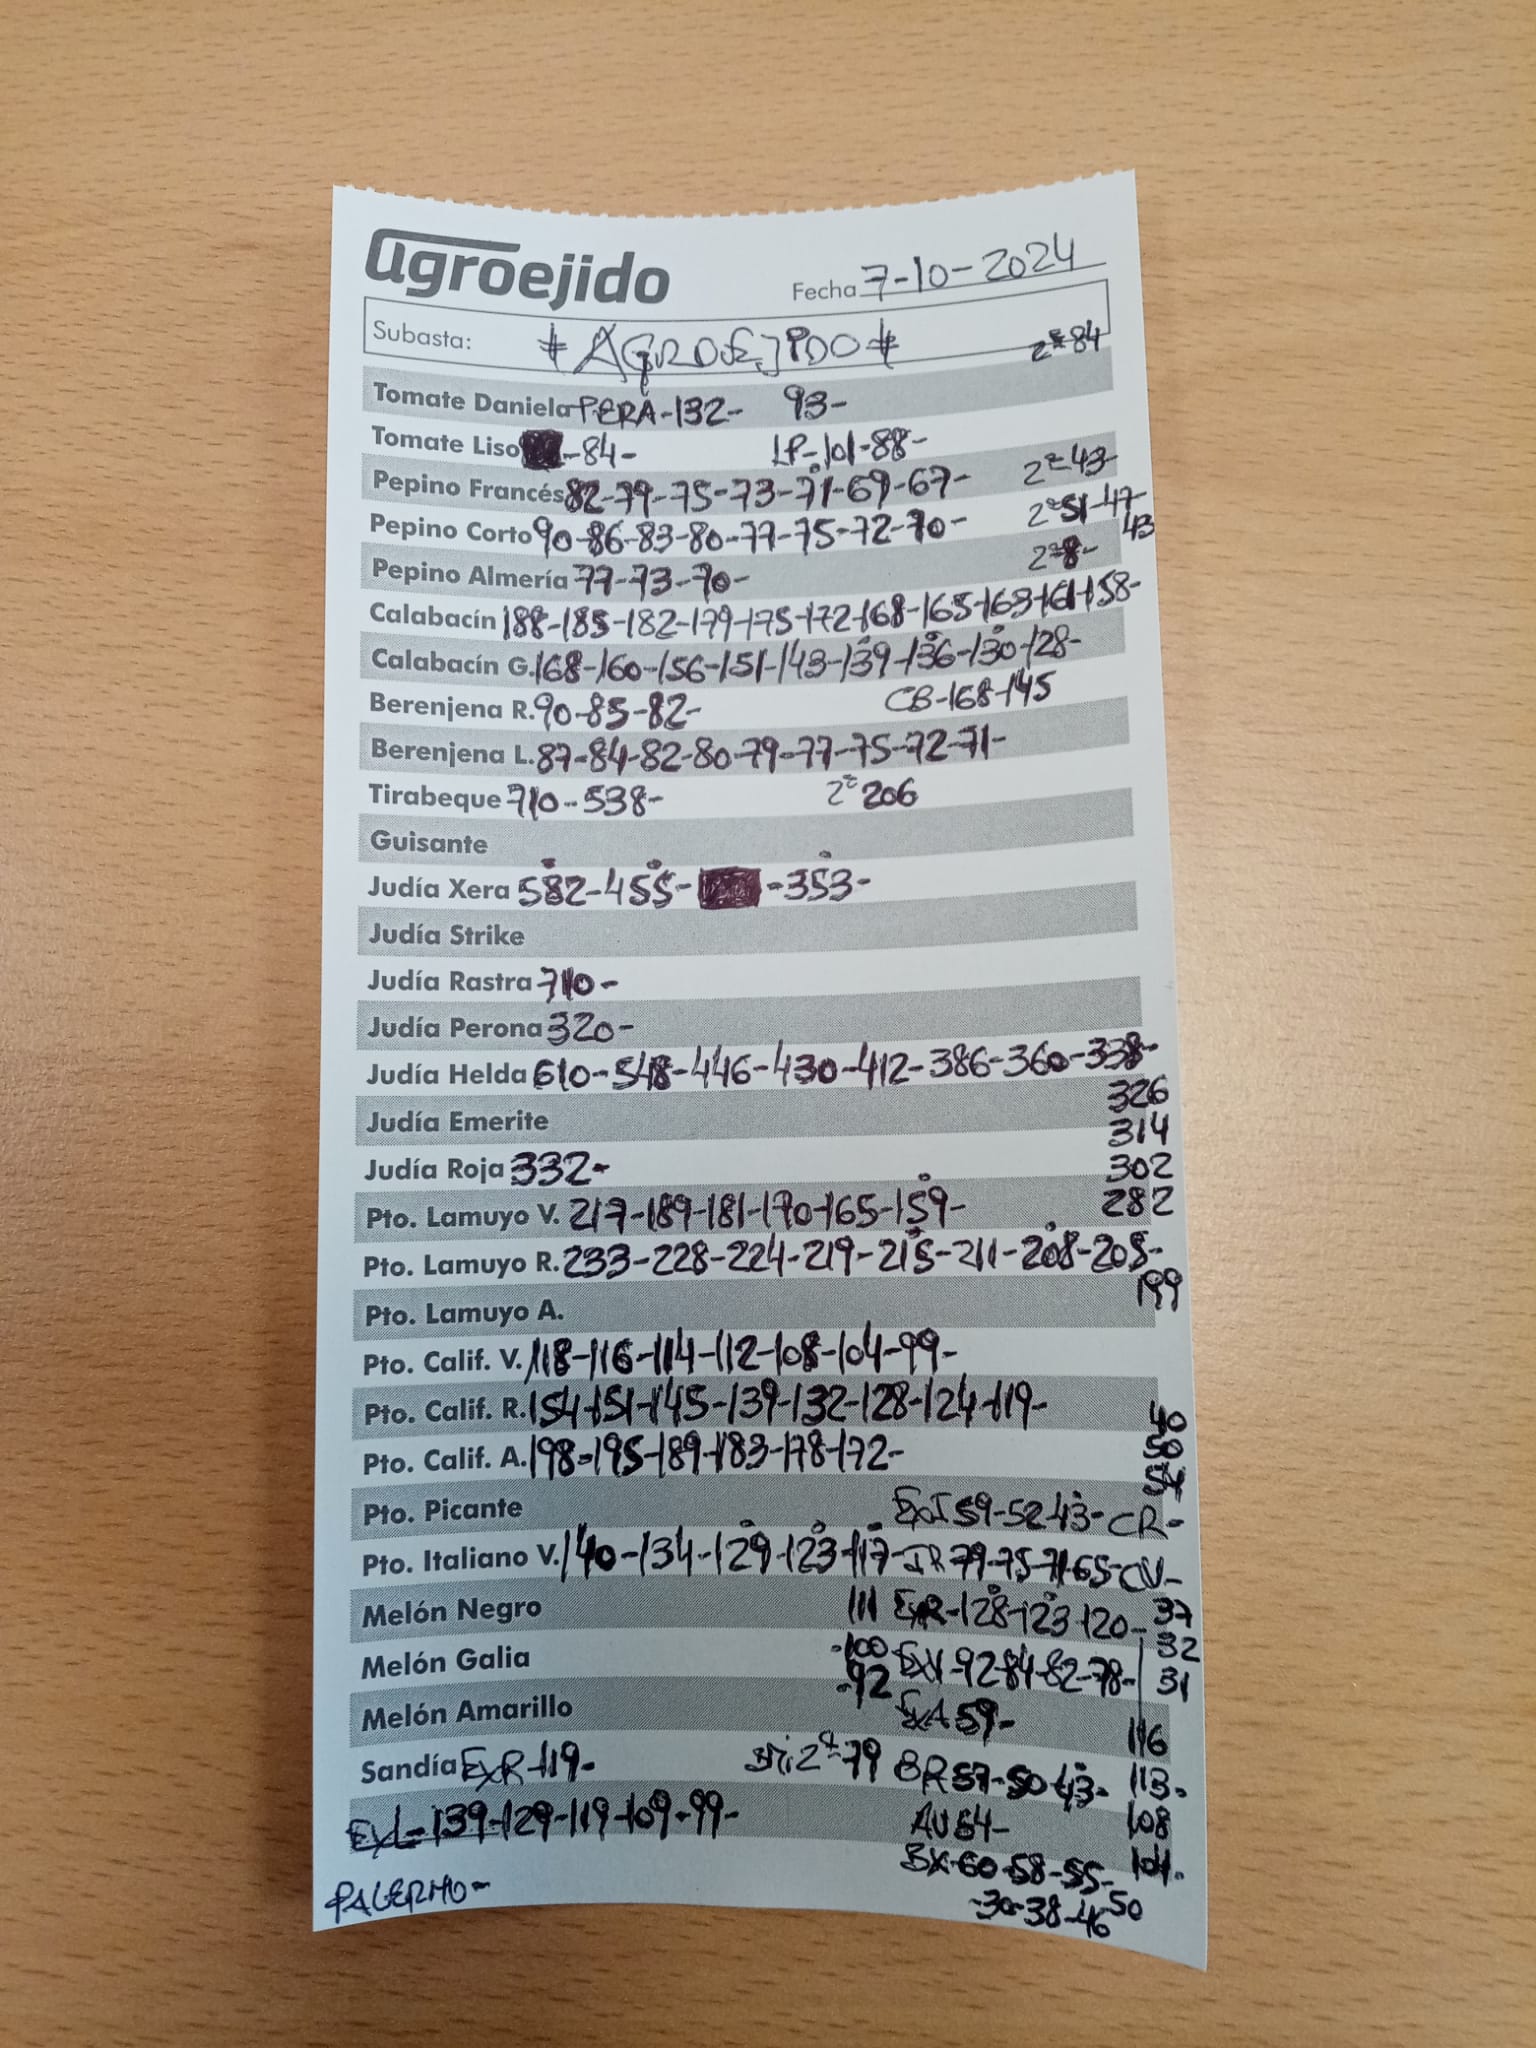 agroejido Fecha 7-10-2024
Subasta: #AGROEJIDO# 2ª 84
Tomate Daniela PERA-132- 93-
Tomate Liso -84- LP-101-88-
Pepino Francés 82-79-75-73-71-69-67- 2ª 43-
Pepino Corto 90-86-83-80-77-75-72-70- 2ª 51-47-
43
Pepino Almería 77-73-70- 2ª 8-
Calabacín 188-185-182-179-175-172-168-165-163-161-158-
Calabacín G. 168-160-156-151-143-139-136-130-128-
Berenjena R. 90-85-82- CB-168-145
Berenjena L. 87-84-82-80-79-77-75-72-71-
Tirabeque 710-538- 2ª 206
Guisante
Judía Xera 582-455- -353-
Judía Strike
Judía Rastra 710-
Judía Perona 320-
Judía Helda 610-548-446-430-412-386-360-338-
326
Judía Emerite 314
Judía Roja 332- 302
Pto. Lamuyo V. 217-189-181-170-165-159- 282
Pto. Lamuyo R. 233-228-224-219-215-211-208-205-
199
Pto. Lamuyo A.
Pto. Calif. V. 118-116-114-112-108-104-99-
Pto. Calif. R. 154-151-145-139-132-128-124-119- 40
Pto. Calif. A. 198-195-189-183-178-172- 50
54
Pto. Picante 59-52-43-CR-
Pto. Italiano V. 140-134-129-123-117-IR 79-75-71-65-CV-
Melón Negro 111 EXR-128-123-120- 37
32
Melón Galia -100 EXV-92-84-82-78- 31
-92
Melón Amarillo EXA 59- 116
Sandía EXR-119- 2ª-79 BR 57-50-43- 113-
EXL-139-129-119-109-99- AV 64- 108
BX-60-58-55- 104-
PALERMO- -30-38-46-50